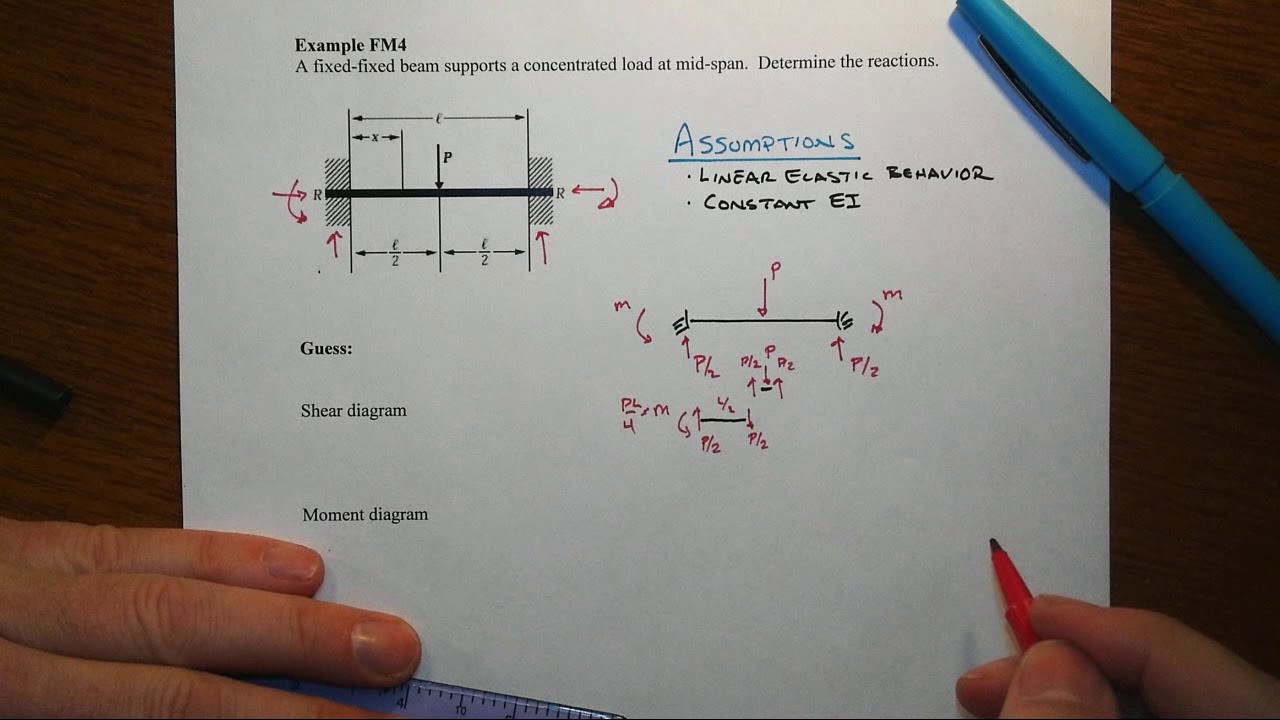 Example FM4
A fixed-fixed beam supports a concentrated load at mid-span. Determine the reactions.
ℓ
x
P
R
R
ℓ/2
ℓ/2
ASSUMPTIONS
· LINEAR ELASTIC BEHAVIOR
· CONSTANT EI
P
m
m
P/2
P/2
Guess:
P
P/2
P/2
Shear diagram
PL/4
m
L/2
P/2
P/2
Moment diagram
4
10